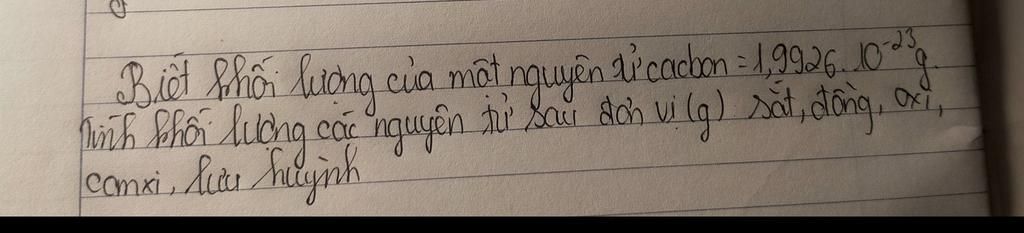 Biết khối lượng của một nguyên tử cacbon = 1,9926.10⁻²³g.
Tính khối lượng các nguyên tử sau đơn vị (g) sắt, đồng, oxi,
canxi, lưu huỳnh